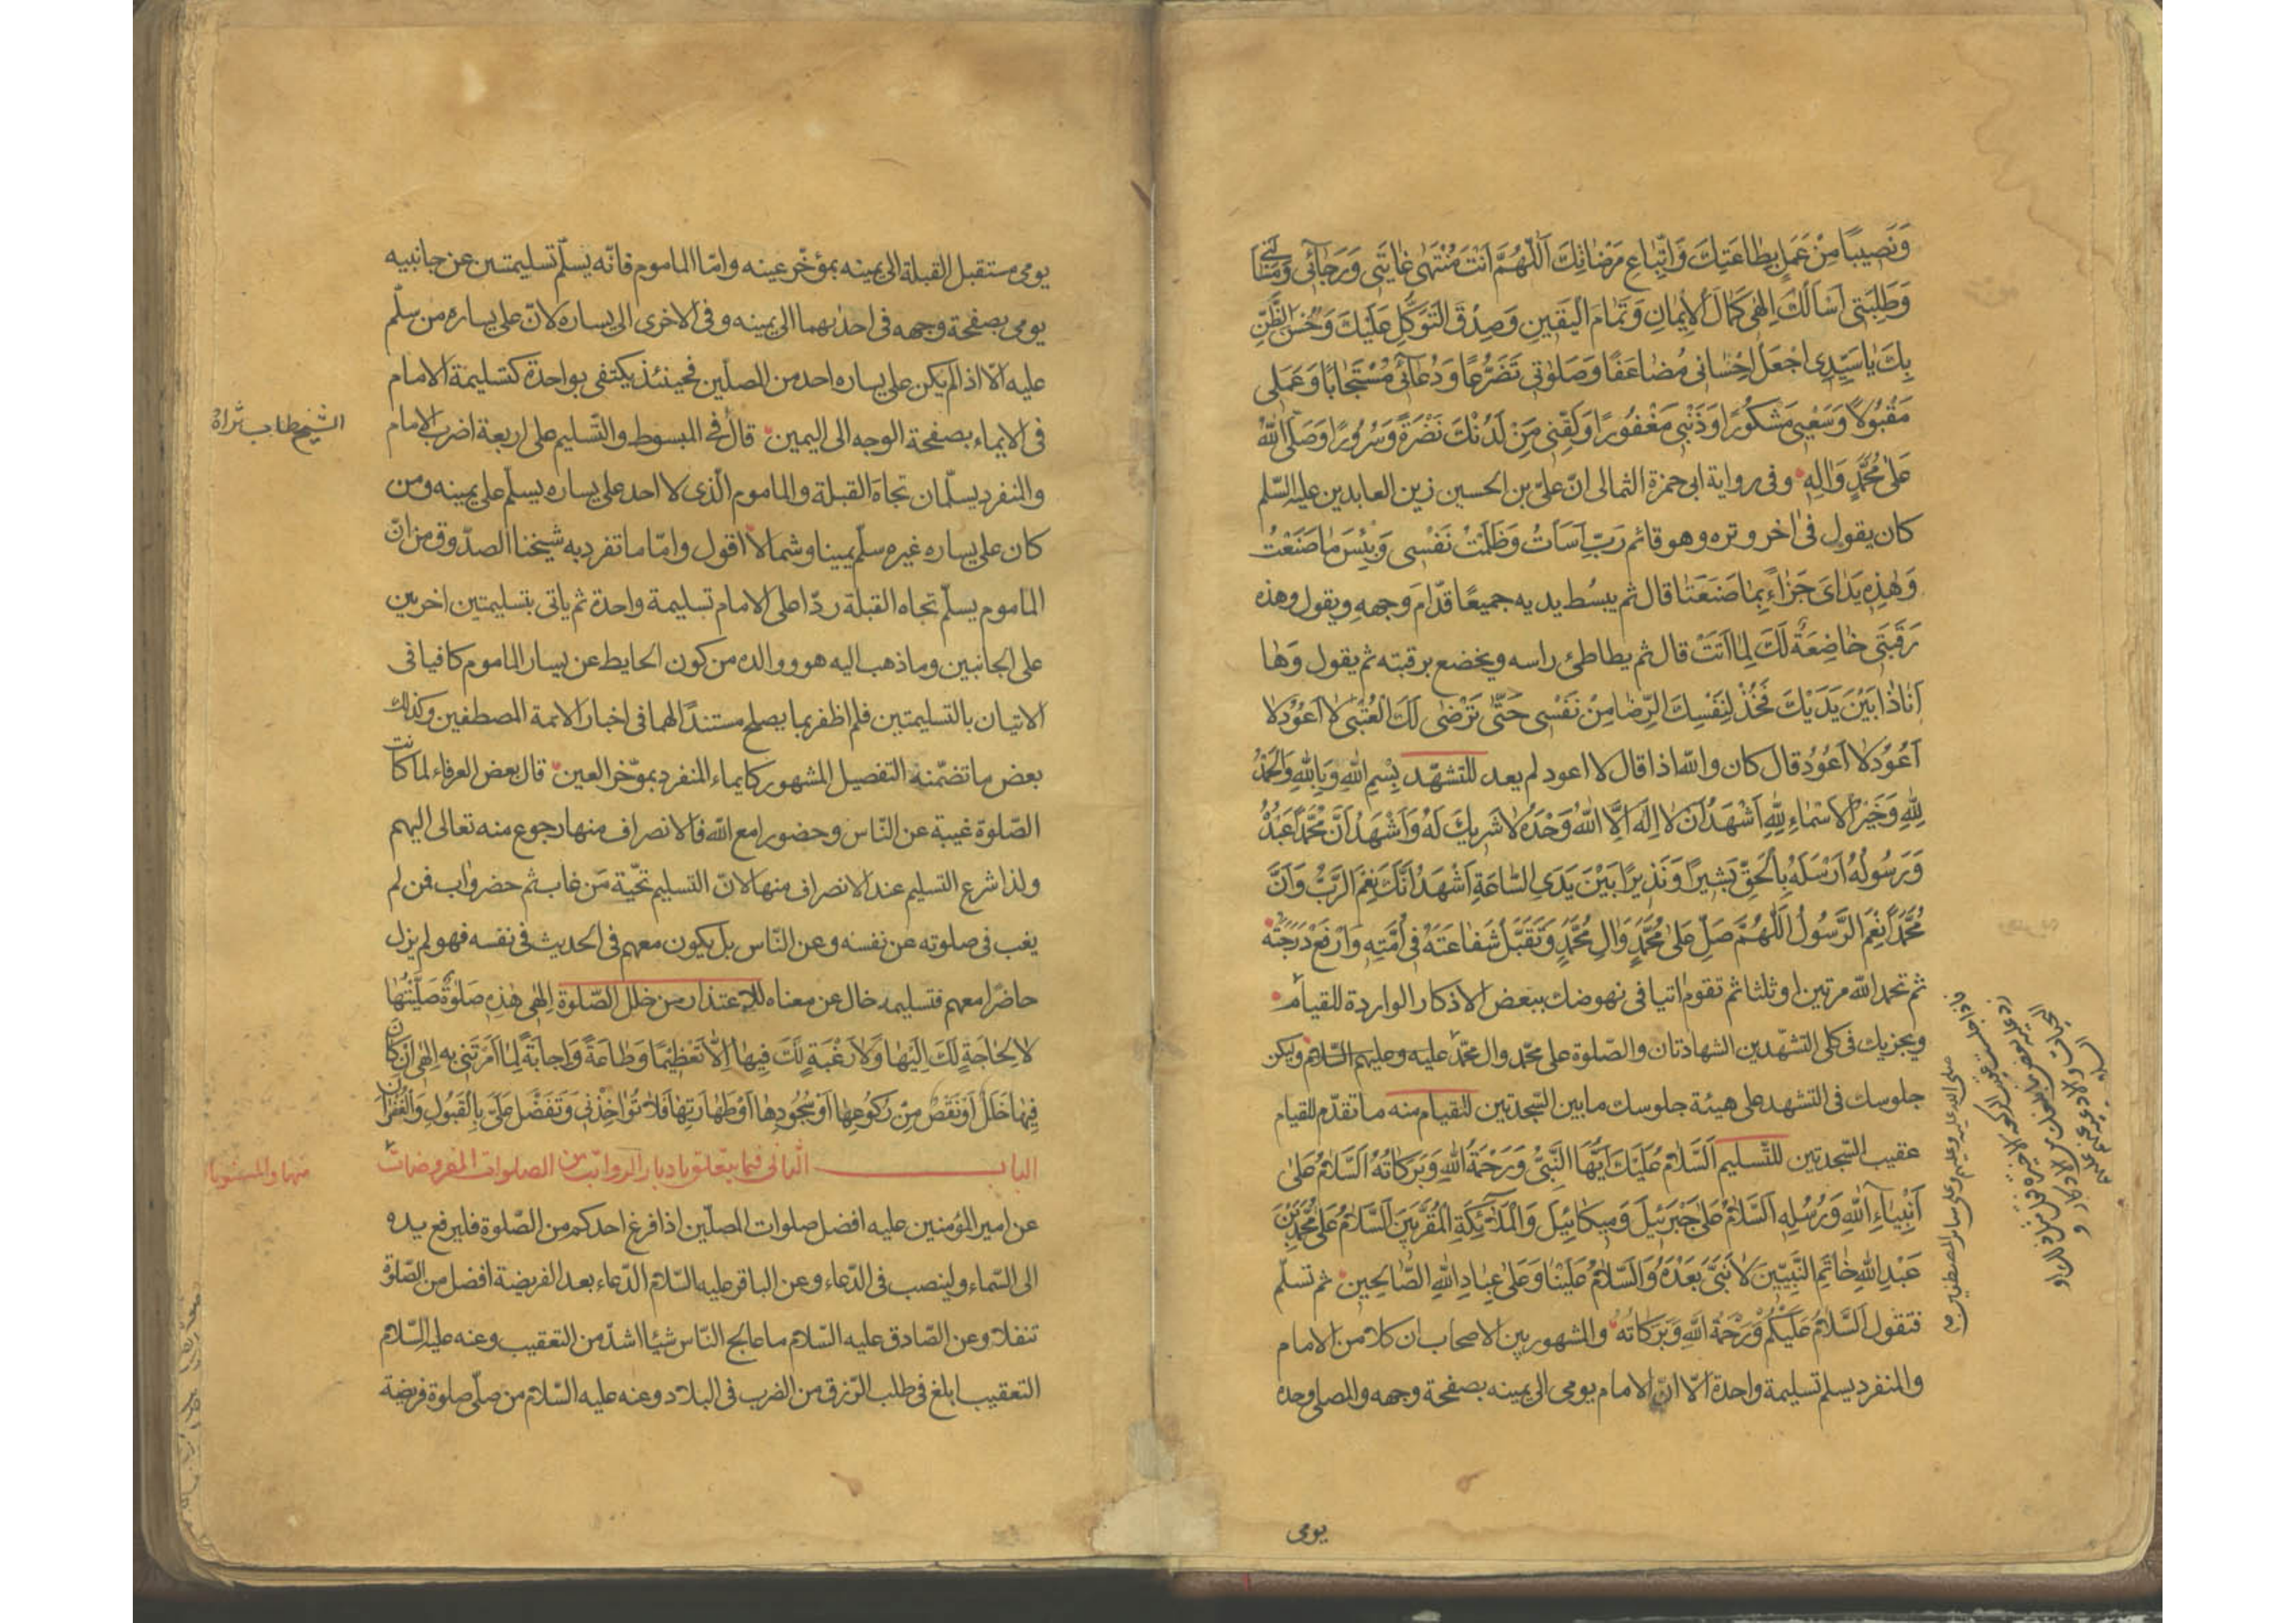 وَنَصِيبًا مِنْ عَمَلٍ بِطَاعَتِكَ وَاتِّبَاعِ مَرْضَاتِكَ اَللّٰهُمَّ اَنْتَ مُنْتَهٰى غَايَتِى وَرَجَائِى وَمَسْأَلَتِى
وَطَلِبَتِى اَسْأَلُكَ اِلٰهِى كَمَالَ الْاِيمَانِ وَتَمَامَ الْيَقِينِ وَصِدْقَ التَّوَكُّلِ عَلَيْكَ وَحُسْنَ الظَّنِّ
بِكَ يَا سَيِّدِى اجْعَلْ اِحْسَانِى مُضَاعَفًا وَصَلوٰتِى تَضَرُّعًا وَدُعَائِى مُسْتَجَابًا وَعَمَلِى
مَقْبُولًا وَسَعْيِى مَشْكُورًا وَذَنْبِى مَغْفُورًا وَلَقِّنِى مِنْ لَدُنْكَ نَضْرَةً وَسُرُورًا وَصَلَّى اللهُ
عَلٰى مُحَمَّدٍ وَاٰلِهِ وفى رواية ابى حمزة الثمالى انّ علىّ بن الحسين زين العابدين عليه السّلم
كان يقول فى اخر وتره وهو قائم رَبِّ اَسَأتُ وَظَلَمْتُ نَفْسِى وَبِئْسَ مَا صَنَعْتُ
وَهٰذِهِ يَدَاىَ جَزَاءً بِمَا صَنَعَتَا قال ثم يبسُط يديه جميعًا قدّام وجهه ويقول وهذه
رَقَبَتِى خَاضِعَةٌ لَكَ لِمَا اَتَتْ قال ثم يطاطئ راسه ويخضع برقبته ثم يقول وَهَا
اَنَا ذَا بَيْنَ يَدَيْكَ فَخُذْ لِنَفْسِكَ الرِّضَا مِنْ نَفْسِى حَتّٰى تَرْضٰى لَكَ الْعُتْبٰى لَا اَعُوْدُ لَا
اَعُوْدُ لَا اَعُوْدُ قال كان والله اذا قال لا اعود لم يعد للتشهّد بِسْمِ اللهِ وَبِاللهِ وَالْحَمْدُ
لِلّٰهِ وَخَيْرُ الْاَسْمَاءِ لِلّٰهِ اَشْهَدُ اَنْ لَا اِلٰهَ اِلَّا اللهُ وَحْدَهُ لَا شَرِيكَ لَهُ وَاَشْهَدُ اَنَّ مُحَمَّدًا عَبْدُهُ
وَرَسُولُهُ اَرْسَلَهُ بِالْحَقِّ بَشِيرًا وَنَذِيرًا بَيْنَ يَدَىِ السَّاعَةِ اَشْهَدُ اَنَّكَ نِعْمَ الرَّبُّ وَاَنَّ
مُحَمَّدًا نِعْمَ الرَّسُولُ اَللّٰهُمَّ صَلِّ عَلٰى مُحَمَّدٍ وَاٰلِ مُحَمَّدٍ وَتَقَبَّلْ شَفَاعَتَهُ فِى اُمَّتِهِ وَارْفَعْ دَرَجَتَهُ
ثم تحمد الله مرتين او ثلثا ثم تقوم اتيا فى نهوضك ببعض الاذكار الواردة للقيام
ويجزيك فى كلى التشهّدين الشهادتان والصّلوة على محمّد وال محمّد عليه وعليهم السّلام وليكن
جلوسك فى التشهد على هيئة جلوسك مابين السّجدتين للقيام منه ما تقدّم للقيام
عقيب السّجدتين للتّسليم اَلسَّلَامُ عَلَيْكَ اَيُّهَا النَّبِىُّ وَرَحْمَةُ اللهِ وَبَرَكَاتُهُ اَلسَّلَامُ عَلٰى
اَنْبِيَاءِ اللهِ وَرُسُلِهِ اَلسَّلَامُ عَلٰى جَبْرَئِيلَ وَمِيكَائِيلَ وَالْمَلَائِكَةِ الْمُقَرَّبِينَ اَلسَّلَامُ عَلٰى مُحَمَّدِ بْنِ
عَبْدِ اللهِ خَاتَمِ النَّبِيِّينَ لَا نَبِىَّ بَعْدَهُ وَالسَّلَامُ عَلَيْنَا وَعَلٰى عِبَادِ اللهِ الصَّالِحِينَ ثم تسلّم
فتقول اَلسَّلَامُ عَلَيْكُمْ وَرَحْمَةُ اللهِ وَبَرَكَاتُهُ والمشهور بين الاصحاب ان كلا من الامام
والمنفرد يسلم تسليمة واحدة الّا انّ الامام يومى الى يمينه بصفحة وجهه والمصلى وحده
صلى الله عليه وعليهم وعلى سائر المصطفين
يومى
يومى مستقبل القبلة الى يمينه بمؤخّر عينه وامّا الماموم فانّه يسلّم تسليمتين عن جانبيه
يومى بصفحة وجهه فى احدٰيهما الى يمينه وفى الاخرى الى يساره لانّ على يساره من سلّم
عليه الّا اذا لم يكن على يساره احد من المصلّين فحينئذ يكتفى بواحدة كتسليمة الامام
فى الايماء بصفحة الوجه الى اليمين قال فى المبسوط والتّسليم على اربعة اضرب الامام
الشيخ طاب ثراه
والمنفرد يسلّمان تجاه القبلة والماموم الّذى لا احد على يساره يسلّم على يمينه ومن
كان على يساره غيره سلّم يمينا وشمالا اقول وامّا ما تفرد به شيخنا الصدّوق من انّ
الماموم يسلّم تجاه القبلة ردّا على الامام تسليمة واحدة ثم ياتى بتسليمتين اخريين
على الجانبين وما ذهب اليه هو ووالده من كون الحايط عن يسار الماموم كافيا فى
الاتيان بالتسليمتين فلم اظفر بما يصلح مستندًا لهما فى اخبار الائمة المصطفين وكذلك
بعض ما تضمّنه التفصيل المشهور كايماء المنفرد بموّخر العين قال بعض العرفاء لما كانت
الصّلوة غيبة عن النّاس وحضورا مع الله فالانصراف منها رجوع منه تعالى اليهم
ولذا شرع التسليم عند الانصراف منها لانّ التسليم تحيّة مَن غاب ثم حضر واب فمن لم
يغب فى صلوته عن نفسه وعن النّاس بل يكون معهم فى الحديث فى نفسه فهو لم يزل
حاضرًا معهم فتسليمه خال عن معناه للاعتذار من خلل الصّلوة اِلٰهِى هٰذِهِ صَلوٰةٌ صَلَّيْتُهَا
لَا لِحَاجَةٍ لَكَ اِلَيْهَا وَلَا رَغْبَةٍ لَكَ فِيهَا اِلَّا تَعْظِيمًا وَطَاعَةً وَاِجَابَةً لِمَا اَمَرْتَنِى بِهِ اِلٰهِى اِنْ كَانَ
فِيهَا خَلَلٌ اَوْ نَقْصٌ مِنْ رُكُوعِهَا اَوْ سُجُودِهَا اَوْ طَهَارَتِهَا فَلَا تُؤَاخِذْنِى وَتَفَضَّلْ عَلَىَّ بِالْقَبُولِ وَالْغُفْرَانِ
الباب الثانى فيما يتعلق بادبار الرواتب من الصلوات المفروضات
منها والمسنونات
عن امير المؤمنين عليه افضل صلوات المصلّين اذا فرغ احدكم من الصّلوة فليرفع يديه
الى السّماء ولينصب فى الدّعاء وعن الباقر عليه السّلام الدّعاء بعد الفريضة افضل من الصّلوة
تنفلا وعن الصّادق عليه السّلام ما عالج النّاس شيئا اشدّ من التعقيب وعنه عليه السّلام
التعقيب ابلغ فى طلب الرّزق من الضرب فى البلاد وعنه عليه السّلام من صلّى صلوة فريضة